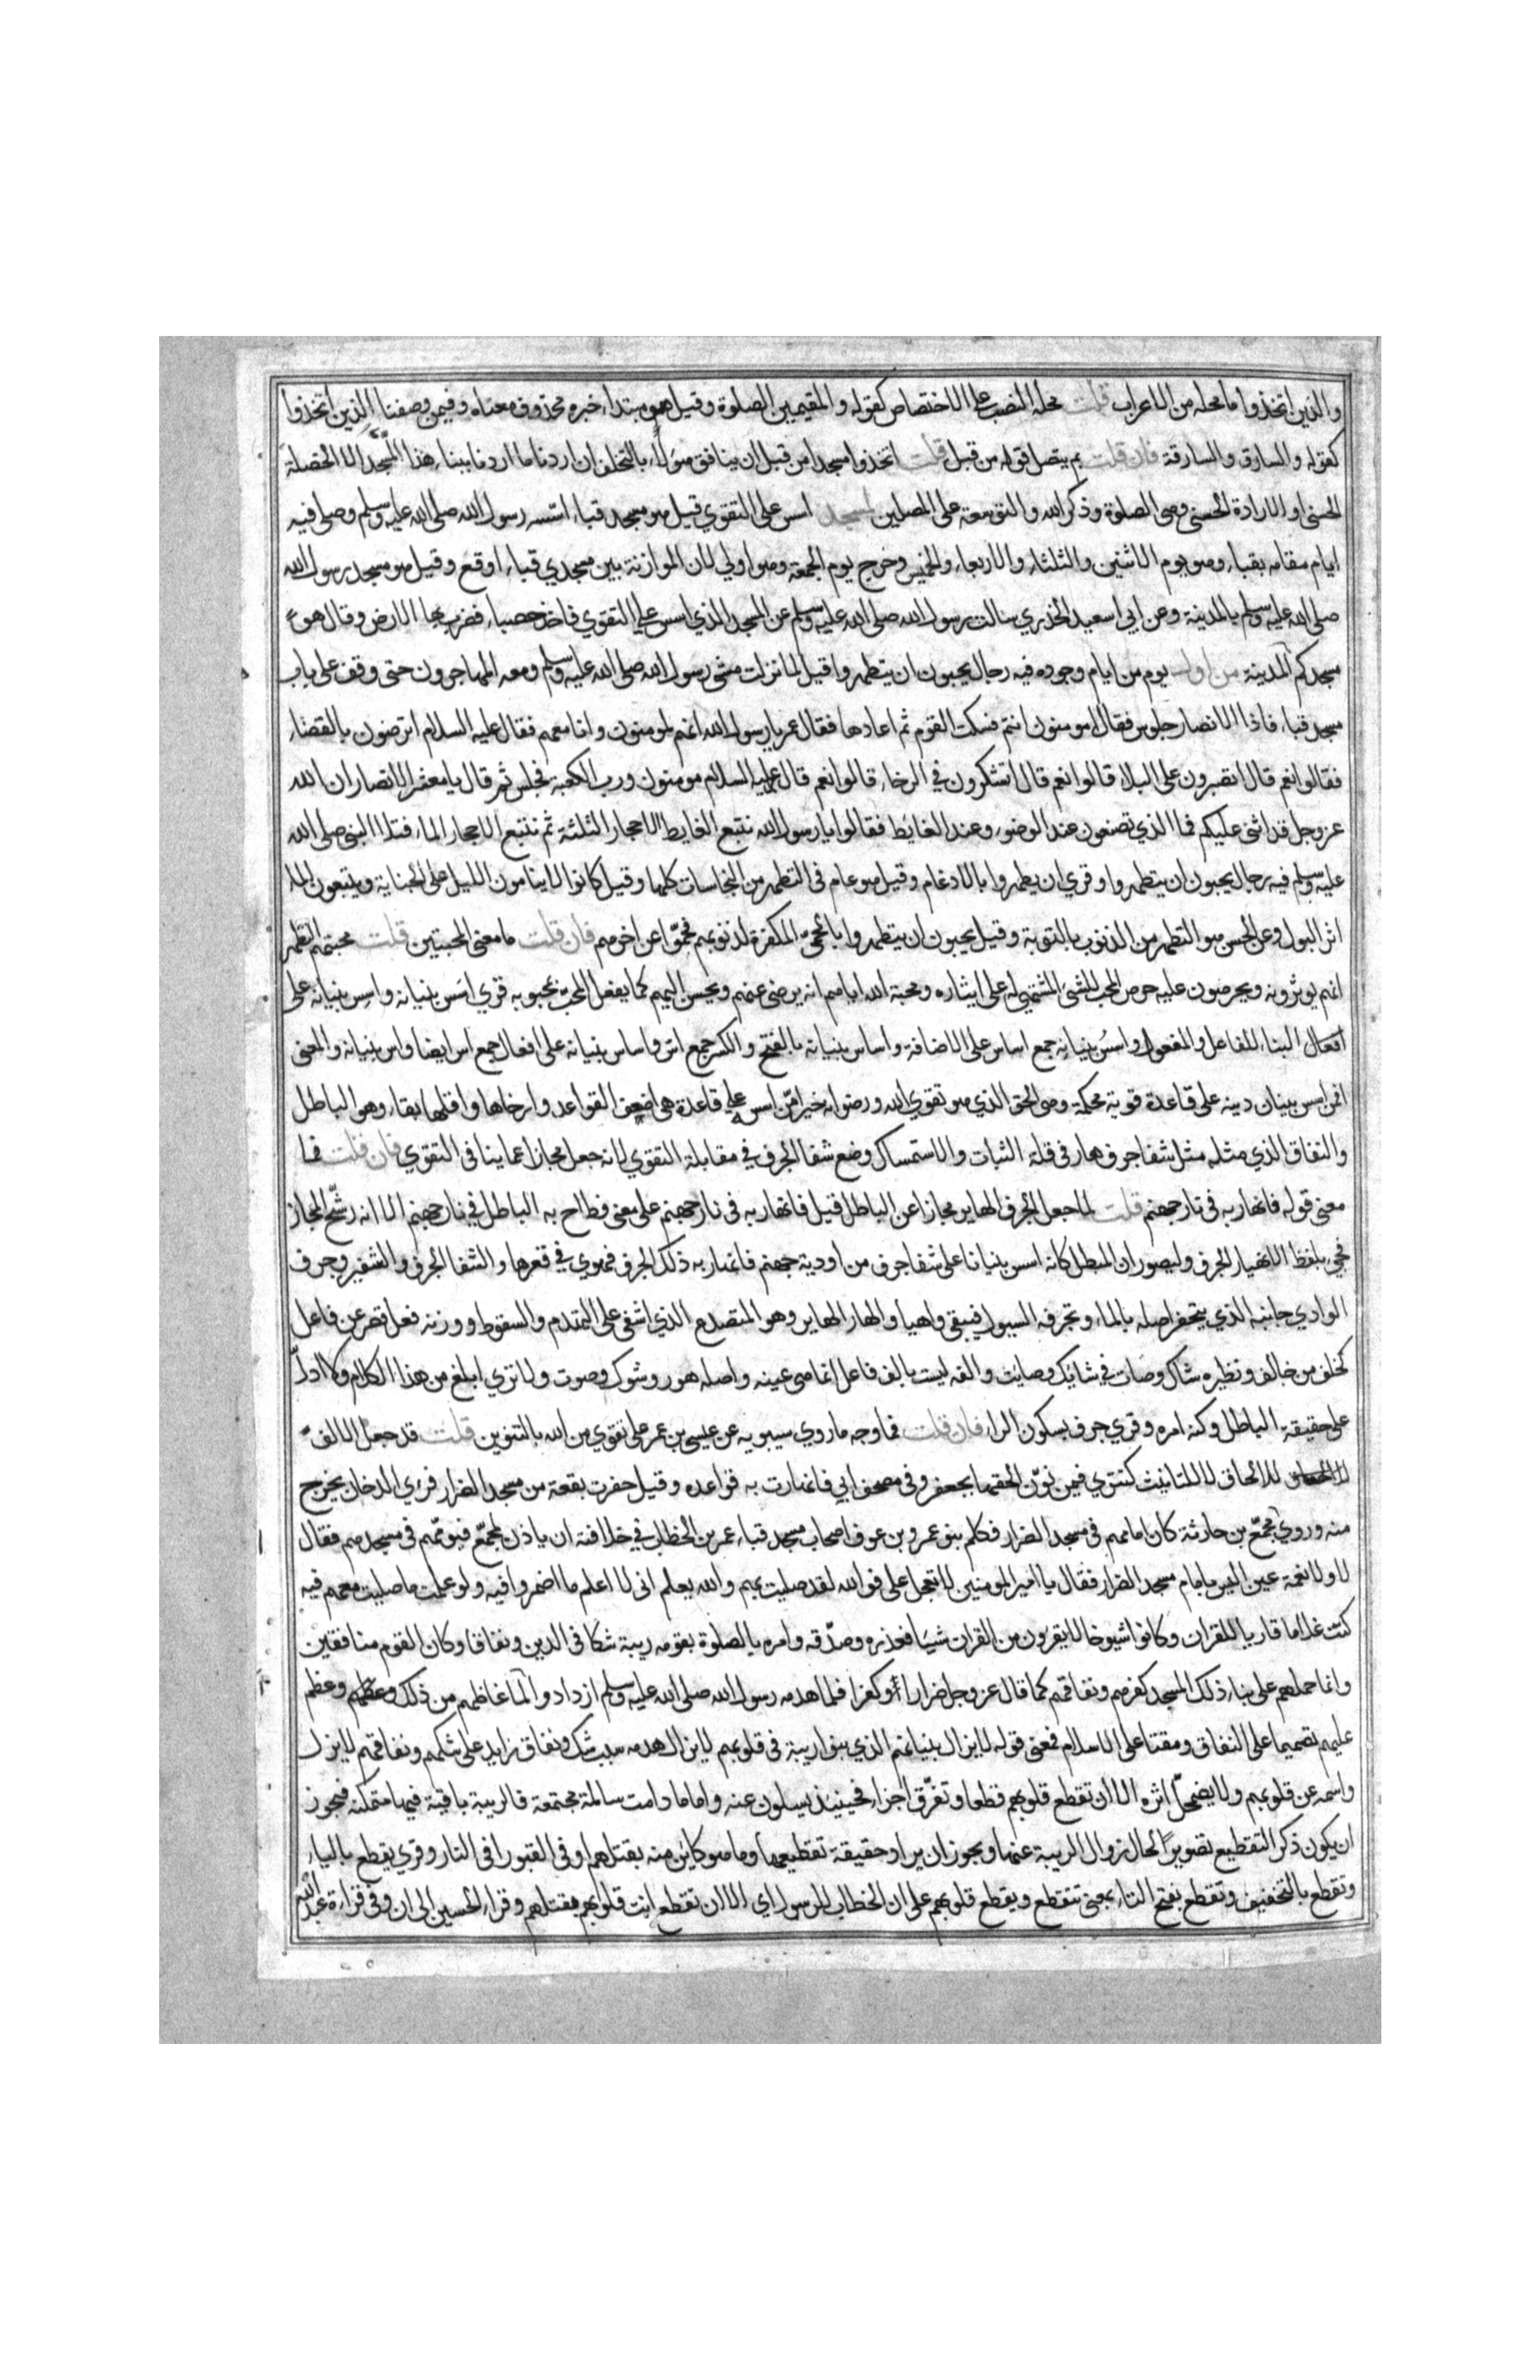 والذين اتخذوا ما محله من الاعراب قلت محله النصب على الاختصاص كقوله والمقيمين الصلوة وقيل هو مبتداء خبره محذوف معناه وفيمن وصفنا الذين اتخذوا
كقوله والسارق والسارقة فان قلت بم يتصل قوله من قبل قلت اتخذوا مسجدا من قبل ان ينافق هؤلاء بالتخلف ان اردنا ما اردنا ببناء هذا المسجد الا الخصلة
الحسنى او الارادة الحسنى وهى الصلوة وذكر الله والتوسعة على المصلين لمسجد اسس على التقوي قيل هو مسجد قباء اسسه رسول الله صلى الله عليه وسلم وصلى فيه
ايام مقامه بقباء وهو يوم الاثنين والثلثاء والاربعاء والخميس وخرج يوم الجمعة وهو اولي لان الموازنة بين مسجدي قباء اوقع وقيل هو مسجد رسول الله
صلى الله عليه وسلم بالمدينة وعن ابي سعيد الخدري سالت رسول الله صلى الله عليه وسلم عن المسجد الذي اسس على التقوي فاخذ حصباء فضرب بها الارض وقال هو
مسجدكم المدينة من اول يوم من ايام وجوده فيه رجال يحبون ان يتطهروا قيل لما نزلت مشى رسول الله صلى الله عليه وسلم ومعه المهاجرون حتى وقف على باب
مسجد قباء فاذا الانصار جلوس فقال امومنون انتم فسكت القوم ثم اعادها فقال عمر يا رسول الله انهم لمومنون وانا معهم فقال عليه السلام اترضون بالقضاء
فقالوا نعم قال اتصبرون على البلاء قالوا نعم قال اتشكرون في الرخاء قالوا نعم قال عليه السلام مومنون ورب الكعبة فجلس ثم قال يا معشر الانصار ان الله
عز وجل قد اثنى عليكم فما الذي تصنعون عند الوضوء وعند الغائط فقالوا يا رسول الله نتبع الغايط الاحجار الثلثة ثم نتبع الاحجار الماء فتلا النبى صلى الله
عليه وسلم فيه رجال يحبون ان يتطهروا وقري ان يطهروا بالادغام وقيل هو عام فى التطهر من النجاسات كلها وقيل كانوا لا ينامون الليل على الجنابة ويتبعون الماء
اثر البول وعن الحسن هو التطهر من الذنوب بالتوبة وقيل يحبون ان يتطهروا بالحمى المكفرة لذنوبهم فحموا عن اخرهم فان قلت ما معنى المحبتين قلت محبتهم التطهر
انهم يوثرونه ويحرصون عليه حرص المحب للشئ المشتهي له على ايثاره ومحبة الله اياهم انه يرضى عنهم ويحسن اليهم كما يفعل المحب بمحبوبه قري اسس بنيانه واسس بنيانه على
افعال البناء للفاعل والمفعول واسس بنيانه جمع اساس على الاضافة واساس بنيانه بالفتح والكسر جمع اس واساس بنيانه على افعال جمع اس ايضا واس بنيانه والمعنى
افمن اسس بنيان دينه على قاعدة قوية محكمة وهى الحق الذي هو تقوي الله ورضوانه خير امن اسس على قاعدة هى اضعف القواعد وارخاها واقلها بقاء وهو الباطل
والنفاق الذي مثله مثل شفا جرف هار فى قلة الثبات والاستمساك وضع شفا الجرف في مقابلة التقوي لانه جعل مجازا عما ينافى التقوي فان قلت فما
معنى قوله فانهار به فى نار جهنم قلت لما جعل الجرف الهاير مجازا عن الباطل قيل فانهار به فى نار جهنم على معنى فطاح به الباطل في نار جهنم الا انه رشح المجاز
فجئ بلفظ الانهيار للجرف وليصور ان المبطل كانه اسس بنيانا على شفا جرف من اودية جهنم فانهار به ذلك الجرف فهوي في قعرها والشفا الجرف والشفير وجرف
الوادي جانبه الذي يتحفر اصله بالماء وتجرفه السيول فيبقى واهيا والهار الهاير وهو المتصدع الذي اشفى على التهدم والسقوط ووزنه فعل قصر عن فاعل
كخلف من خالف ونظيره شاك وصات في شايك وصايت والفه ليست بالف فاعل انما هى عينه واصله هور وشوك وصوت ولا تري ابلغ من هذا الكلام ولا ادل
على حقيقة الباطل وكنه امره وقري جرف بسكون الراء فان قلت فما وجه ما روي سيبويه عن عيسى بن عمر على تقوي من الله بالتنوين قلت قد جعل الالف
للالحاق لا للتانيث كتتري فيمن نون الحقها بجعفر وفى مصحف ابي فانهارت به قواعده وقيل حفرت بقعة من مسجد الضرار فرئي الدخان يخرج
منه وروي مجمع بن حارثة كان امامهم فى مسجد الضرار فكلم بنو عمرو بن عوف اصحاب مسجد قباء عمر بن الخطاب في خلافته ان ياذن لمجمع فيؤمهم فى مسجدهم فقال
لا ولا نعمة عين اليس بامام مسجد الضرار فقال يا امير المومنين لا تعجل على فوالله لقد صليت بهم والله يعلم انى لا اعلم ما اضمروا فيه ولو علمت ما صليت معهم فيه
كنت غلاما قاريا للقران وكانوا شيوخا لا يقرؤن من القران شيئا فعذره وصدقه وامره بالصلوة بقومه ريبة شكا فى الدين ونفاقا وكان القوم منافقين
وانما حملهم على بناء ذلك المسجد كفرهم ونفاقهم كما قال عز وجل ضرارا وكفرا فلما هدمه رسول الله صلى الله عليه وسلم ازدادوا لما غاظهم من ذلك وعظم
عليهم تصميما على النفاق ومقتا على الاسلام فمعنى قوله لا يزال بنيانهم الذي بنوا ريبة فى قلوبهم لا يزال هدمه سبب شك ونفاق زايد على شكهم ونفاقهم لا يزل
واسمه عن قلوبهم ولا يضمحل اثره الا ان تقطع قلوبهم قطعا وتفرق اجزاء فحينيذ يسلون عنه واما ما دامت سالمة مجتمعة فالريبة باقية فيها متمكنة فيجوز
ان يكون ذكر التقطيع تصويرا لحال زوال الريبة عنها ويجوز ان يراد حقيقة تقطيعها وما هو كاين منه بقتلهم او فى القبور او فى النار وقري يقطع بالياء
وتقطع بالتخفيف وتقطع بفتح التاء بمعنى تتقطع ويقطع قلوبهم على ان الخطاب للرسول اي الا ان تقطع انت قلوبهم بقتلهم وقراء الحسن الى ان وفى قراءة عبد الله